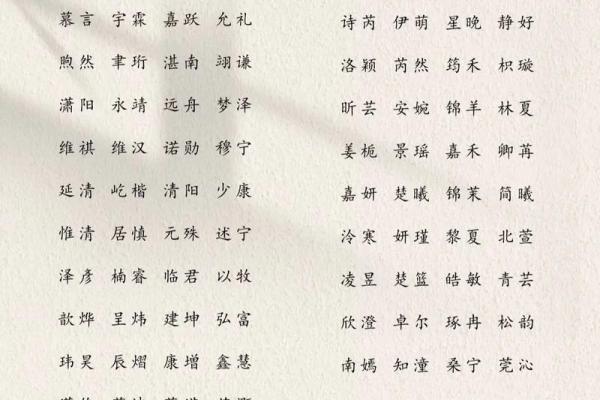 慕言 宇霖 嘉跃 允礼
煦然 聿珩 湛南 翊谦
潇阳 永靖 远舟 梦泽
维祺 维汉 诺勋 穆宁
延清 屹楷 清阳 少康
惟清 居慎 元殊 述宁
泽彦 楠睿 临君 以牧
歆烨 呈炜 建坤 弘富
玮昊 辰熠 康增 鑫慧
诗芮 伊萌 星晚 静好
洛颖 芮然 筠禾 枳璇
昕芸 安婉 锦羊 林夏
姜栀 景瑶 嘉禾 卿苒
嘉妍 楚曦 锦茉 简曦
泠寒 妍瑾 黎夏 北萱
凌昱 楚篮 皓敏 青芸
欣澄 卓尔 琢冉 松韵
南嫣 知潼 桑宁 莞沁